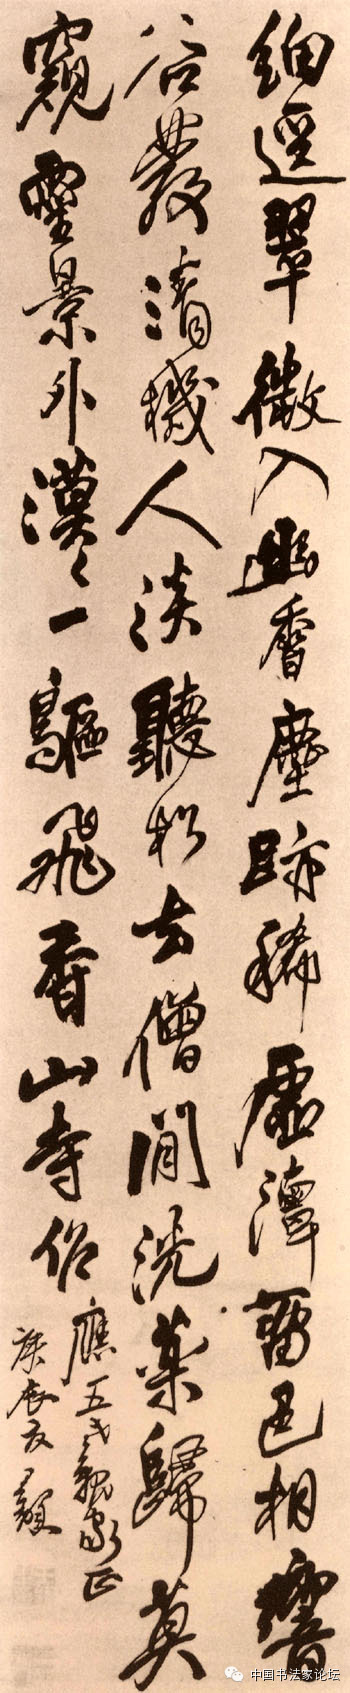 細逕翠微入幽香塵跡稀虛濤留色相響
谷發清機人淡聽松去僧閒洗藥歸莫
窺靈景外漠〻一鷗飛香山寺作
應五弋親家正
庚辰
中国书法家论坛